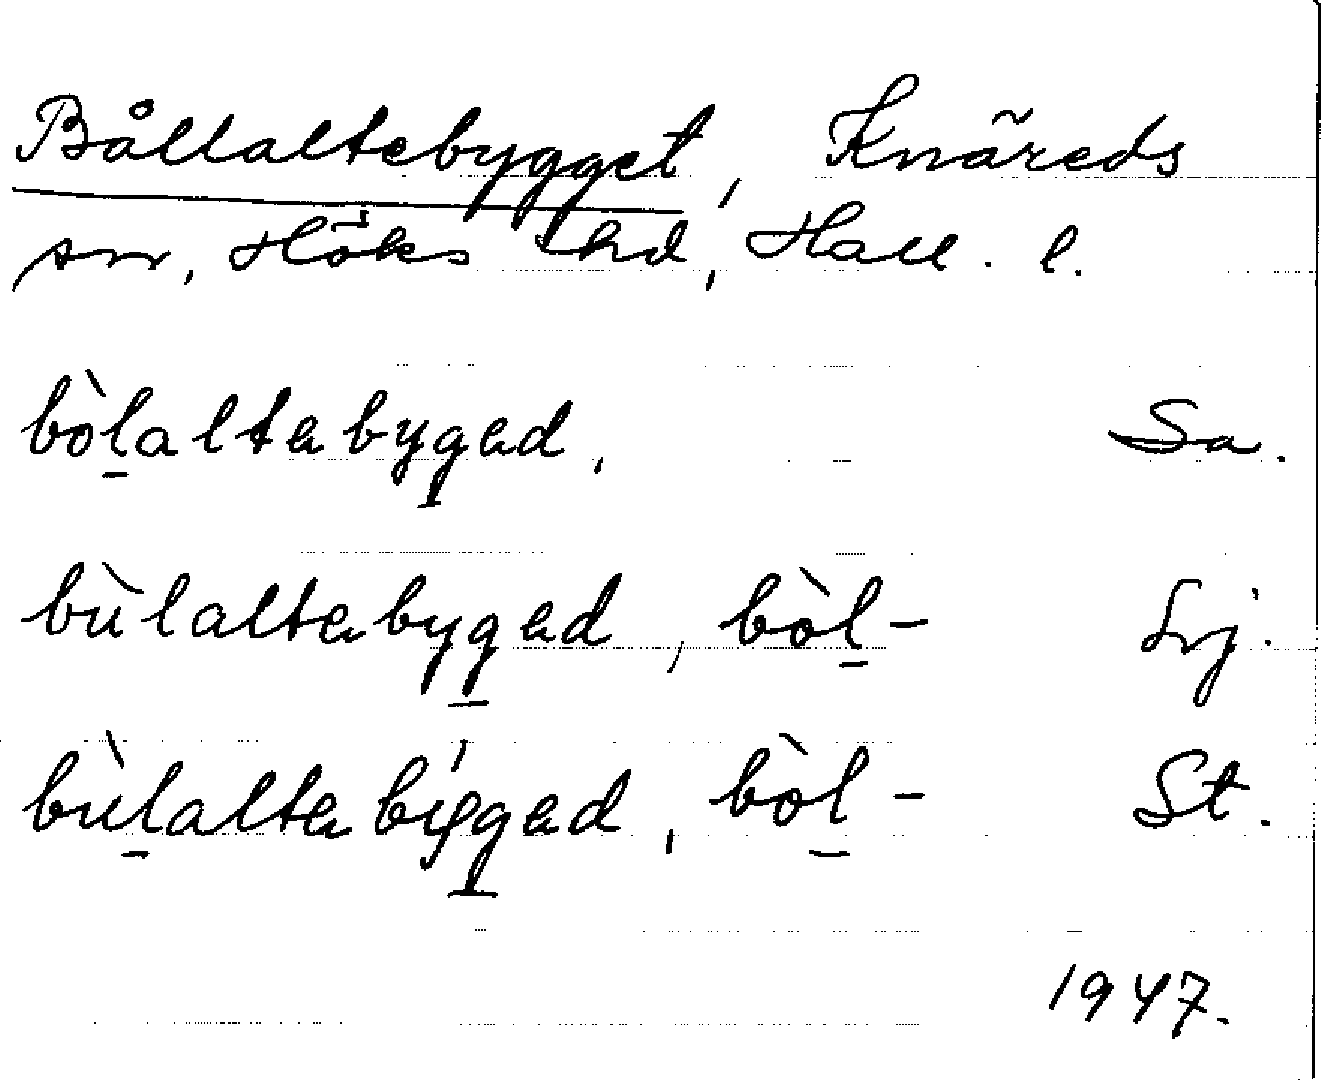 Bållaltebygget, Knäreds
sn, Höks hd, Hall. l.
bòl̲altabyg̲ad, Sa.
bùlaltabyg̲ad, bòl̲- Srj.
bùl̲altabýg̲ad, bòl̲- St.
1947.